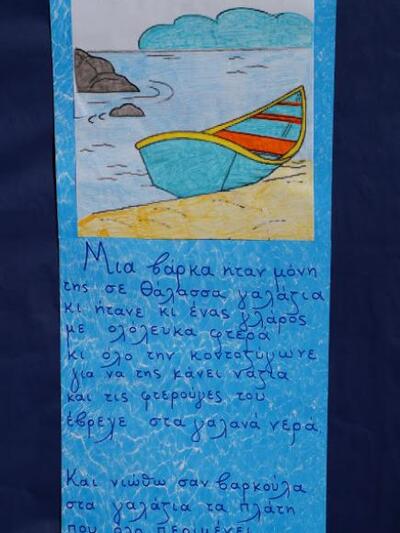 Μια βάρκα ηταν μόνη
της σε θάλασσα γαλάζια
κι ήτανε κι ένας γλάρος
με ολόλευκα φτερά
κι όλο την κοντοζύγωνε
για να της κάνει νάζια
και τις φτερούγες του
έβρεχε στα γαλανά νερά.
Και νιώθω σαν βαρκούλα
στα γαλάζια τα πλάτη
που όλο περιμένει